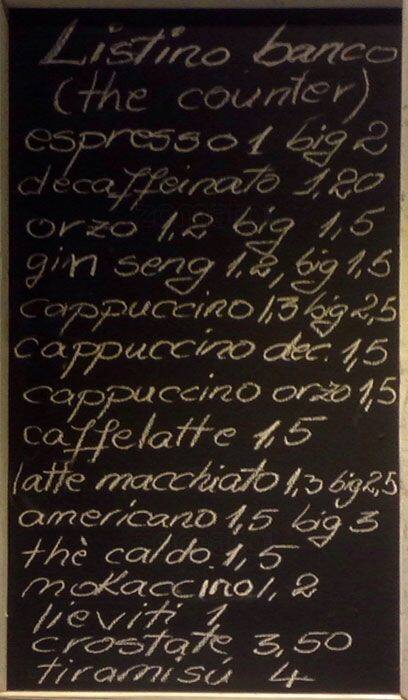 Listino banco
(the counter)
espresso 1 big 2
decaffeinato 1,20
orzo 1,2 big 1,5
gin seng 1,2, big 1,5
cappuccino 1,3 big 2,5
cappuccino dec. 1,5
cappuccino orzo 1,5
caffelatte 1,5
latte macchiato 1,3 big 2,5
americano 1,5 big 3
thè caldo. 1,5
mokaccino 1,2
lieviti 1
crostate 3,50
tiramisú 4